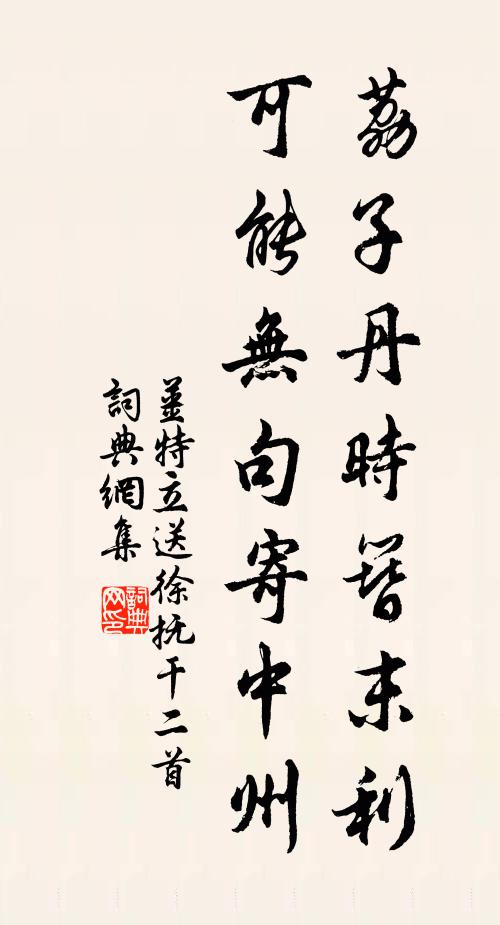 荔子丹時簪末利
可能無句寄中州
薑特立送徐抚干二首
詞典網集
詞典网印